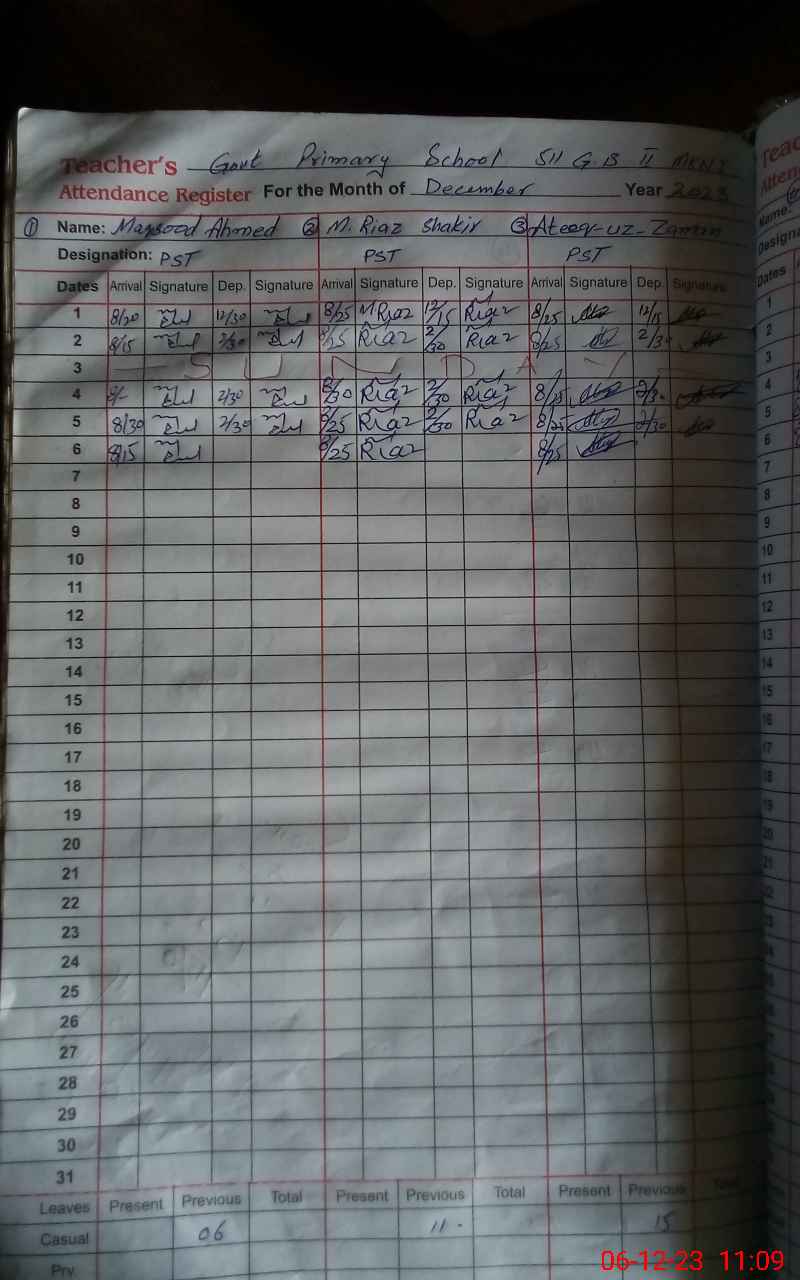 Teacher's Govt Primary School 511 G.B II MKNJ
Attendance Register For the Month of December Year 2023
① Name: Maqsood Ahmed ② M. Riaz Shakir ③ Ateeq-uz-Zaman
Designation: PST PST PST
Dates Arrival Signature Dep. Signature Arrival Signature Dep. Signature Arrival Signature Dep. Signature
1 8/20 12/30 8/25 M.Riaz 12/15 Riaz 8/25 12/15
2 8/15 2/30 8/25 Riaz 2/30 Riaz 8/25 2/30
3 S U N D A Y
4 8/- 2/30 8/30 Riaz 2/30 Riaz 8/25 2/30
5 8/30 2/30 8/25 Riaz 2/30 Riaz 8/25 2/30
6 8/15 8/25 Riaz 8/25
7
8
9
10
11
12
13
14
15
16
17
18
19
20
21
22
23
24
25
26
27
28
29
30
31
Leaves Present Previous Total Present Previous Total Present Previous Total
Casual 06 11 15
Prv.
06-12-23 11:09
Teac
Atten
Name:
Designa
Dates
1
2
3
4
5
6
7
8
9
10
11
12
13
14
15
16
17
18
19
20
21
22
23